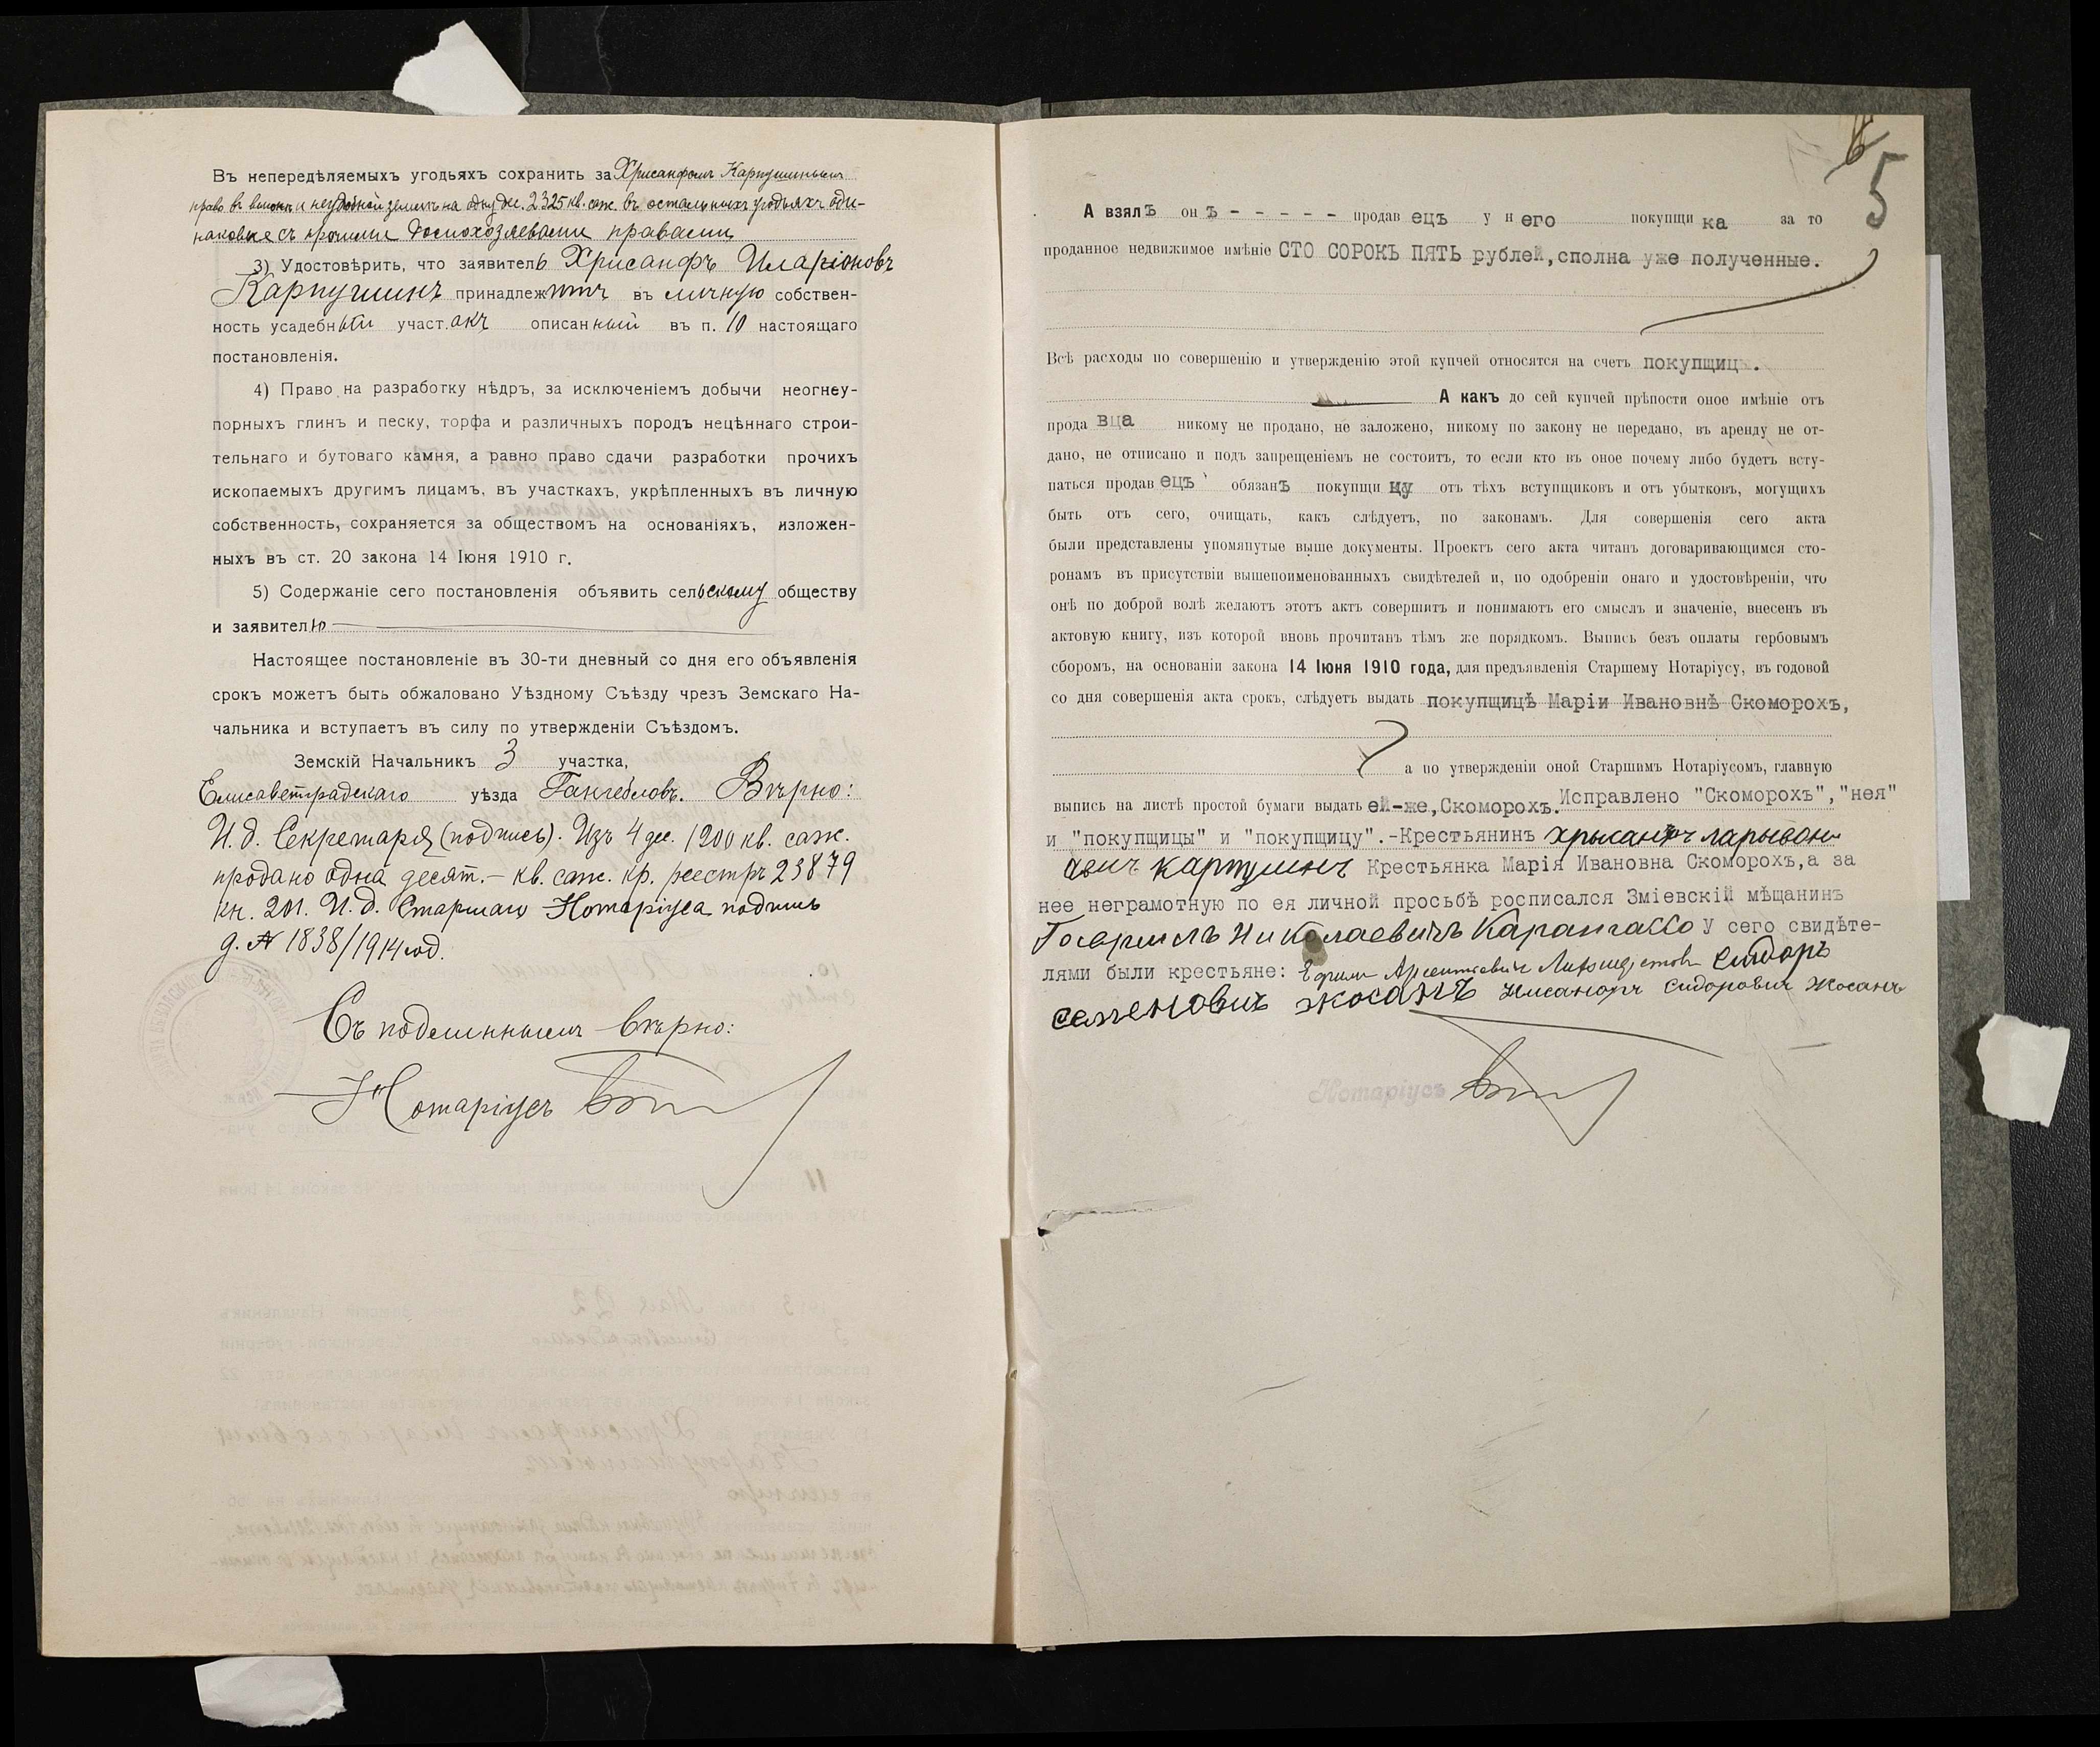 Въ непередѣляемыхъ угодьяхъ сохранить за Хрисанфомъ Карпушинымъ
право въ выгонѣ и неудобной землѣ на одну дес. 2325 кв. саж. въ остальныхъ угодьяхъ оди-
наковое съ прочими домохозяевами правами
3) Удостовѣрить, что заявитель Хрисанфъ Иларіоновъ
Карпушинъ принадлежитъ въ личную собствен-
ность усадебный участ.окъ описанный въ п. 10 настоящаго
постановленія.
4) Право на разработку нѣдръ, за исключеніемъ добычи неогнеу-
порныхъ глинъ и песку, торфа и различныхъ породъ нецѣннаго строи-
тельнаго и бутоваго камня, а равно право сдачи разработки прочихъ
ископаемыхъ другимъ лицамъ, въ участкахъ, укрѣпленныхъ въ личную
собственность, сохраняется за обществомъ на основаніяхъ, изложен-
ныхъ въ ст. 20 закона 14 Іюня 1910 г.
5) Содержаніе сего постановленія объявить сельскому обществу
и заявителю
Настоящее постановленіе въ 30-ти дневный со дня его объявленія
срокъ можетъ быть обжаловано Уѣздному Съѣзду чрезъ Земскаго На-
чальника и вступаетъ въ силу по утвержденіи Съѣздомъ.
Земскій Начальникъ 3 участка,
Елисаветградскаго уѣзда Гангебловъ. Вѣрно:
И. д. Секретаря (подпись). Изъ 4 дес. 1200 кв. саж.
продано одна десят. — кв. саж. кр. реестръ 23879
кн. 201. И. д. Старшаго Нотаріуса подпись
д. № 1838/1914 год.
Съ подлиннымъ вѣрно:
Нотаріусъ
5
А взялъ онъ - - - - - продавецъ у него покупщика за то
проданное недвижимое имѣніе СТО СОРОКЪ ПЯТЬ рублей, сполна уже полученные.
Всѣ расходы по совершенію и утвержденію этой купчей относятся на счетъ покупщицы.
А какъ до сей купчей крѣпости оное имѣніе отъ
продавца никому не продано, не заложено, никому по закону не передано, въ аренду не от-
дано, не отписано и подъ запрещеніемъ не состоитъ, то если кто въ оное почему либо будетъ всту-
паться продавецъ обязанъ покупщицу отъ тѣхъ вступщиковъ и отъ убытковъ, могущихъ
быть отъ сего, очищать, какъ слѣдуетъ, по законамъ. Для совершенія сего акта
были представлены упомянутые выше документы. Проектъ сего акта читанъ договаривающимся сто-
ронамъ въ присутствіи вышепоименованныхъ свидѣтелей и, по одобреніи онаго и удостовѣреніи, что
онѣ по доброй волѣ желаютъ этотъ актъ совершить и понимаютъ его смыслъ и значеніе, внесенъ въ
актовую книгу, изъ которой вновь прочитанъ тѣмъ же порядкомъ. Выпись безъ оплаты гербовымъ
сборомъ, на основаніи закона 14 Іюня 1910 года, для предъявленія Старшему Нотаріусу, въ годовой
со дня совершенія акта срокъ, слѣдуетъ выдать покупщицѣ Маріи Ивановнѣ Скоморохъ,
а по утвержденіи оной Старшимъ Нотаріусомъ, главную
выпись на листѣ простой бумаги выдать ей-же, Скоморохъ. Исправлено "Скоморохъ", "нея"
и "покупщицы" и "покупщицу".-Крестьянинъ Хрысанфъ Ларывон
овичъ Карпушинъ Крестьянка Марія Ивановна Скоморохъ, а за
нее неграмотную по ея личной просьбѣ росписался Зміевскій мѣщанинъ
Гаврилъ Николаевичъ Карангассо У сего свидѣте-
лями были крестьяне: Ефимъ Арсентіевичъ Сидоръ
Семеновичъ Жосанъ Никаноръ Сидоровичъ Жосанъ
Нотаріусъ